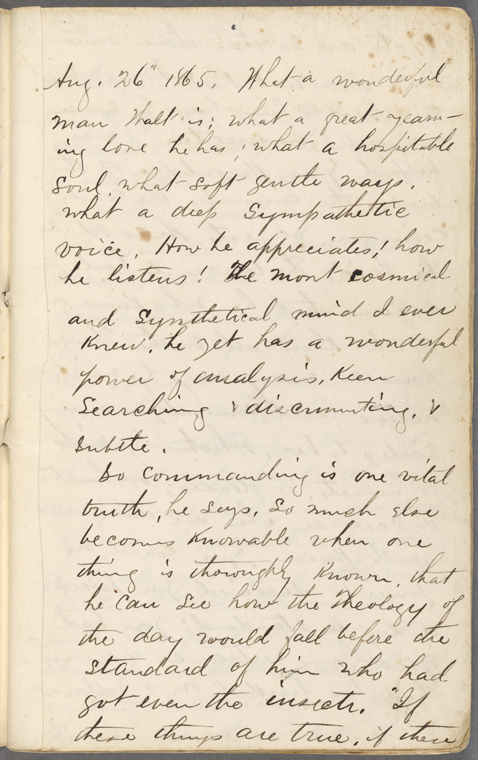 Aug. 26" 1865. What a wonderful
man Walt is; what a great yearn-
ing love he has; what a hospitable
soul, what soft gentle ways,
what a deep Sympathetic
voice. How he appreciates! how
he listens! The most cosmical
and Synthetical mind I ever
Knew, he yet has a wonderful
power of analysis, Keen
Searching & discriminting, &
Subtle.
So commanding is one vital
truth, he says, So much else
becomes Knowable when one
thing is thoroughly Known, that
he can see how the Theology of
the day would fall before the
Standard of him who had
got even the insects. "If
these things are true, if these